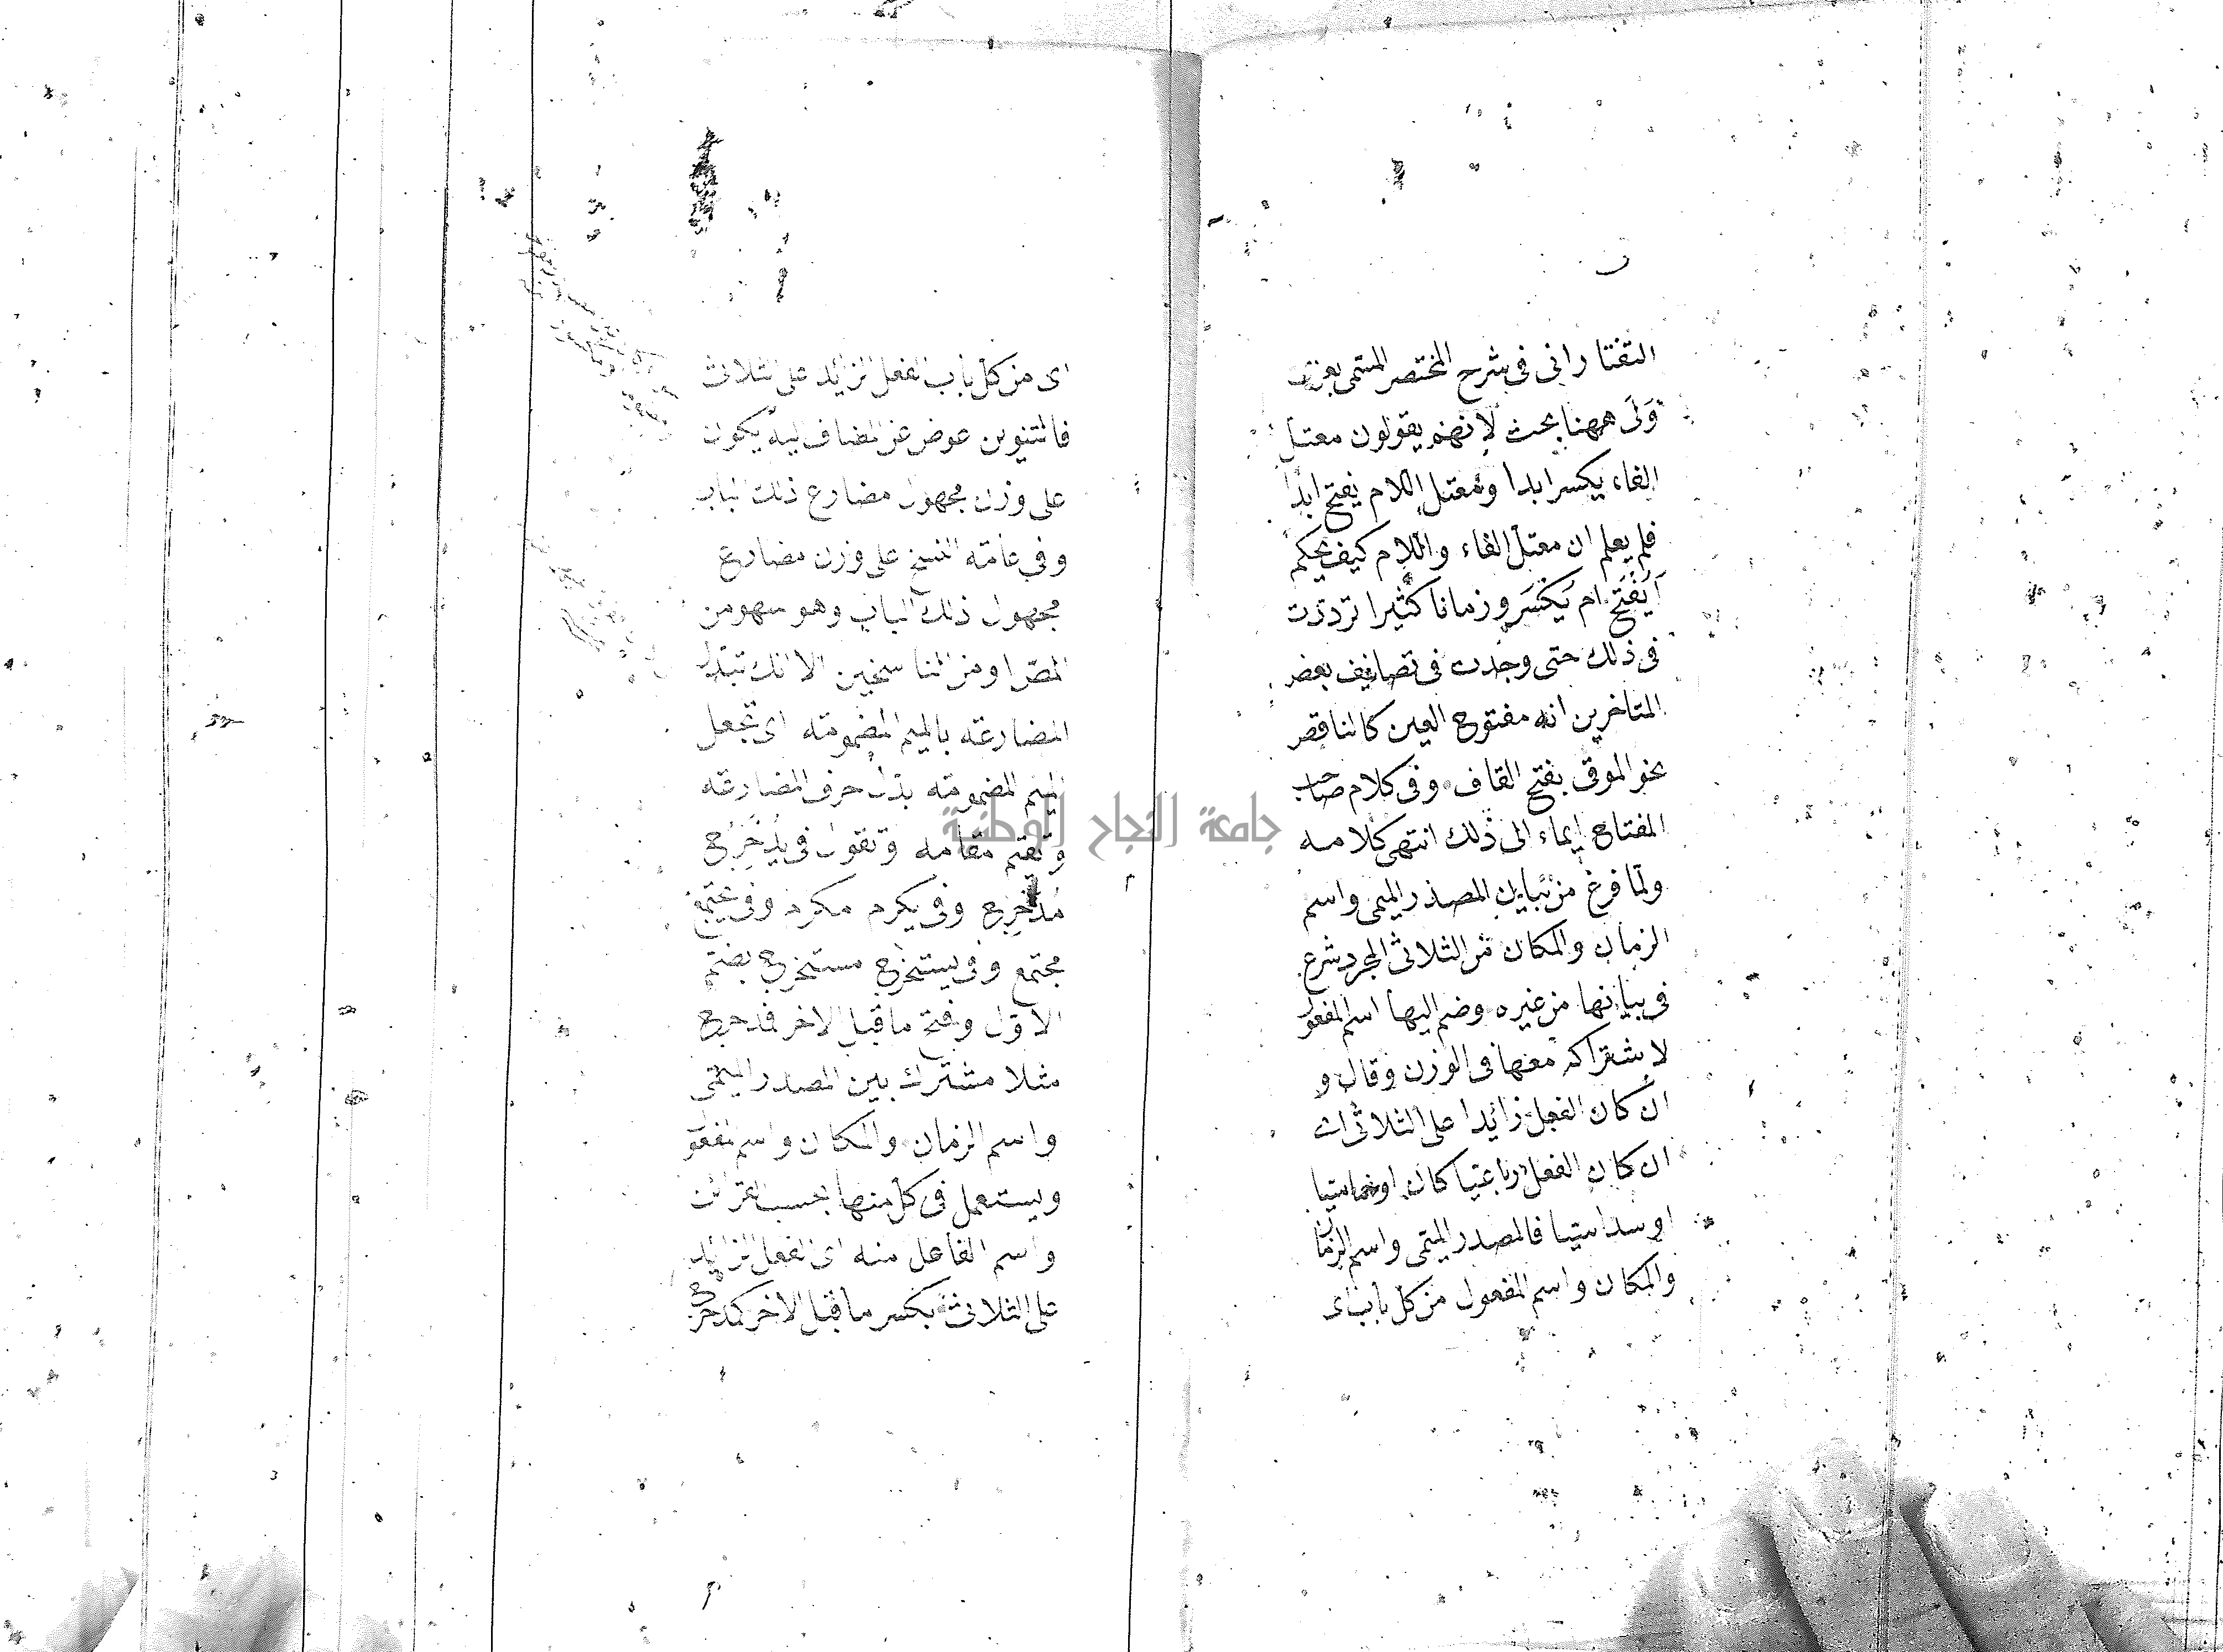 التفتازانى فى شرح المختصر المسمى بعزى
ولى ههنا بحث لانهم يقولون معتل
الفاء يكسر ابدا ومعتل اللام يفتح ابدا
فلم يعلم ان معتل الفاء واللام كيف يحكم
أيفتح ام يكسر وزمانا كثيرا ترددت
فى ذلك حتى وجدت فى تصانيف بعض
المتاخرين انه مفتوح العين كالناقص
نحو الموقى بفتح القاف وفى كلام صاحب
المفتاح ايماء الى ذلك انتهى كلامه
ولما فرغ من المصدر الميمى واسم
الزمان والمكان من الثلاثى المجرد شرع
فى بيانها من غيره وضم اليها اسم المفعول
لاشتراكه معها فى الوزن وقال و
ان كان الفعل زايدا على الثلاثى اى
ان كان الفعل رباعيا كان او خماسيا
او سداسيا فالمصدر الميمى واسم الزمان
والمكان واسم المفعول من كل باب اى
اى من كل باب الفعل الزائد على الثلاثى
فالتنوين عوض عن المضاف اليه يكون
على وزن مجهول مضارع ذلك الباب
وفى عامة النسخ على وزن مضارع
مجهول ذلك الباب وهو سهو من
المص او من الناسخين الا انك تبدل
المضارعة بالميم المضمومة اى تجعل
الميم المضمومة بدل حرف المضارعة
وتقيم مقامه وتقول فى يدحرج
مدحرج وفى يكرم مكرم وفى يجتمع
مجتمع وفى يستخرج مستخرج بضم
الاول وفتح ما قبل الاخر فمدحرج
مثلا مشترك بين المصدر الميمى
واسم الزمان والمكان واسم المفعول
ويستعمل فى كل منها بحسب القرائن
واسم الفاعل منه اى الفعل الزائد
على الثلاثى بكسر ما قبل الاخر كمدحرج
جامعة النجاح الوطنية